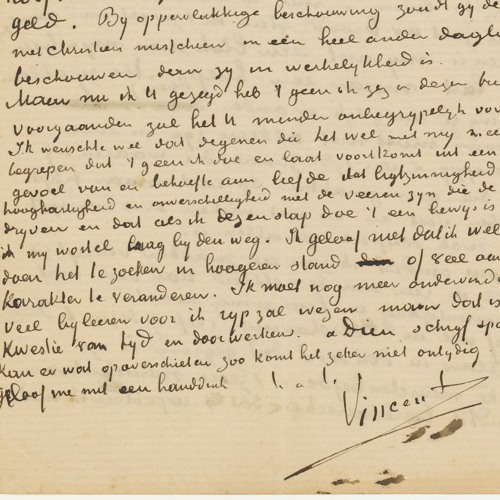 geld. By oppervlakkige beschouwing zoudt gy de
met Christien misschien in een heel ander daglicht
beschouwen dan zy in werkelykheid is.
Maar nu ik U gezegd heb 't geen ik zeg in dezen
voorgaanden zal het U minder onbegrypelyk voor
Ik wenschte wel dat degenen die het wel met my meenen
begrepen dat 't geen ik doe en laat voortkomt uit een
gevoel van en behoefte aan liefde dat
hooghartigheid en onverschilligheid niet de veeren zyn die de
dryven en dat als ik dezen stap doe 't een bewys is
ik my wortel laag by den weg. Ik geloof niet dat ik wel
doen het te zoeken in hoogeren stand of veel aan
karakter te veranderen. Ik moet nog meer
veel byleeren voor ik ryp zal wezen maar dat is
kwestie van tyd en doorwerken. a Dieu schryf spo
kan er wat op overschieten zoo komt het zeker niet ontydig
geloof me met een handdruk t. à t.
Vincent